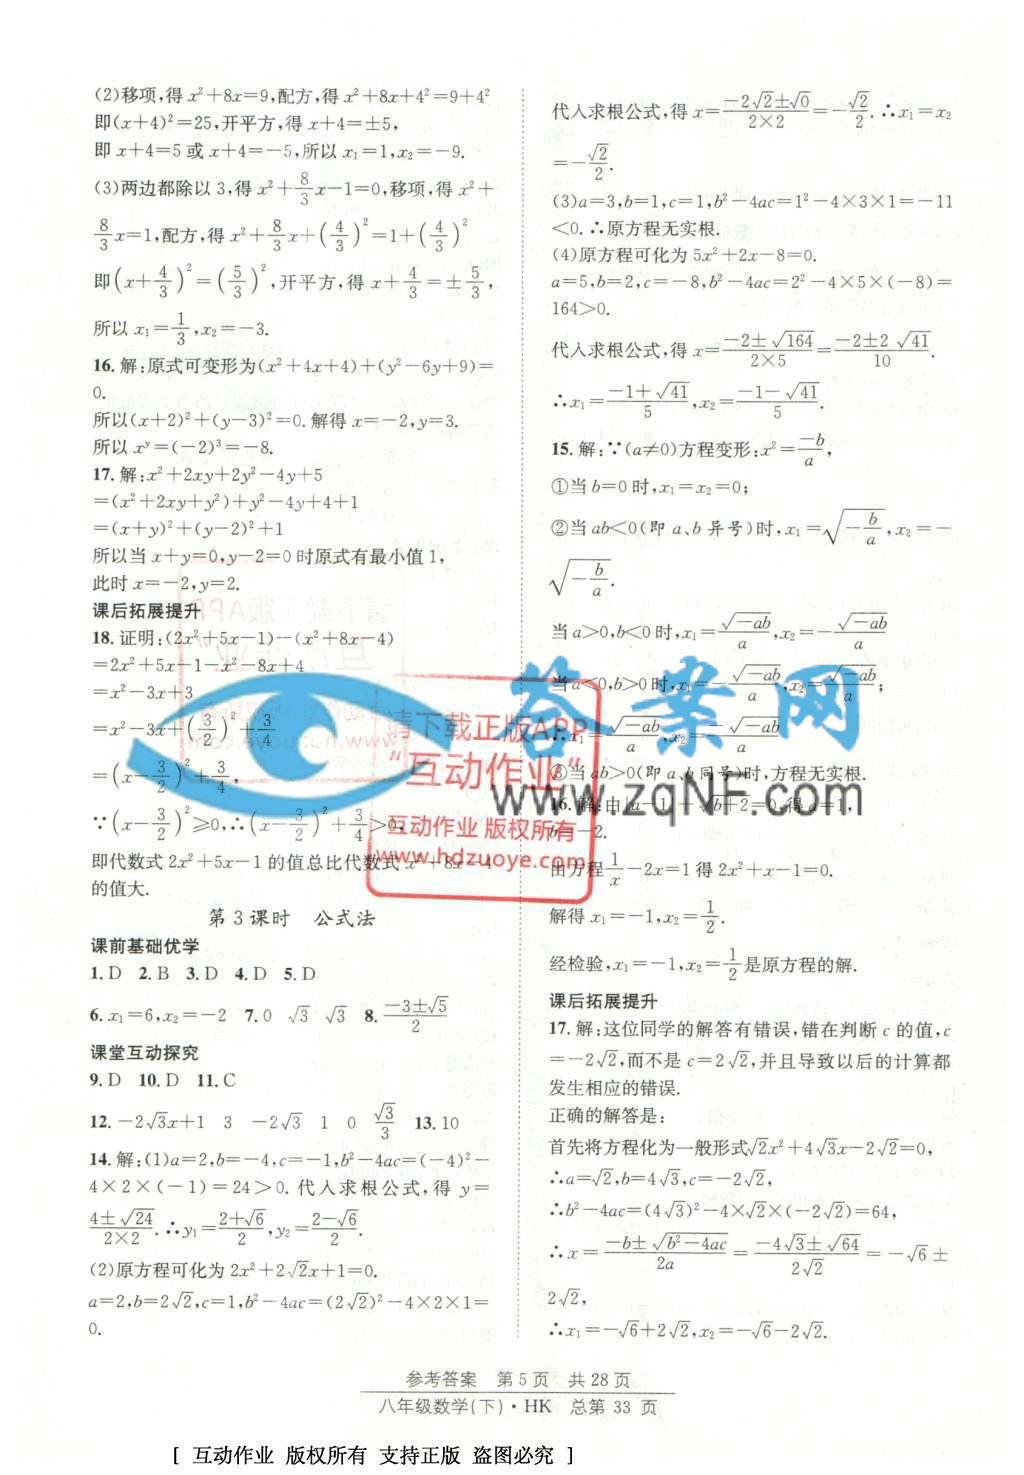 (2)移项,得 x²+8x=9,配方,得 x²+8x+4²=9+4²
即(x+4)²=25,开平方,得 x+4=±5,
即 x+4=5 或 x+4=-5,所以 x₁=1,x₂=-9.
(3)两边都除以 3,得 x²+8/3x-1=0,移项,得 x²+
8/3x=1,配方,得 x²+8/3x+(4/3)²=1+(4/3)²
即(x+4/3)²=(5/3)²,开平方,得 x+4/3=±5/3,
所以 x₁=1/3,x₂=-3.
16.解:原式可变形为(x²+4x+4)+(y²-6y+9)=
0.
所以(x+2)²+(y-3)²=0.解得 x=-2,y=3.
所以 xʸ=(-2)³=-8.
17.解:x²+2xy+2y²-4y+5
=(x²+2xy+y²)+y²-4y+4+1
=(x+y)²+(y-2)²+1
所以当 x+y=0,y-2=0 时原式有最小值 1,
此时 x=-2,y=2.
课后拓展提升
18.证明:(2x²+5x-1)-(x²+8x-4)
=2x²+5x-1-x²-8x+4
=x²-3x+3
=x²-3x+(3/2)²+3/4
=(x-3/2)²+3/4,
∵(x-3/2)²≥0,∴(x-3/2)²+3/4>0,
即代数式 2x²+5x-1 的值总比代数式 x²+8x-4
的值大.
第 3 课时 公式法
课前基础优学
1.D 2.B 3.D 4.D 5.D
6.x₁=6,x₂=-2 7.0 √3 √3 8.(-3±√5)/2
课堂互动探究
9.D 10.D 11.C
12.-2√3x+1 3 -2√3 1 0 √3/3 13.10
14.解:(1)a=2,b=-4,c=-1,b²-4ac=(-4)²-
4×2×(-1)=24>0.代入求根公式,得 y=
(4±√24)/(2×2).∴y₁=(2+√6)/2,y₂=(2-√6)/2.
(2)原方程可化为 2x²+2√2x+1=0.
a=2,b=2√2,c=1,b²-4ac=(2√2)²-4×2×1=
0.
代入求根公式,得 x=(-2√2±√0)/(2×2)=-√2/2.∴x₁=x₂
=-√2/2.
(3)a=3,b=1,c=1,b²-4ac=1²-4×3×1=-11
<0.∴原方程无实根.
(4)原方程可化为 5x²+2x-8=0.
a=5,b=2,c=-8,b²-4ac=2²-4×5×(-8)=
164>0.
代入求根公式,得 x=(-2±√164)/(2×5)=(-2±2√41)/10.
∴x₁=(-1+√41)/5,x₂=(-1-√41)/5.
15.解:∵(a≠0)方程变形:x²=-b/a,
①当 b=0 时,x₁=x₂=0;
②当 ab<0(即 a、b 异号)时,x₁=√(-b/a),x₂=-
√(-b/a).
当 a>0,b<0 时,x₁=√(-ab)/a,x₂=-√(-ab)/a
当 a<0,b>0 时,x₁=-√(-ab)/a,x₂=√(-ab)/a;
∴x₁=√(-ab)/a,x₂=-√(-ab)/a
③当 ab>0(即 a、b 同号)时,方程无实根.
16.解:由|a-1|+√(b+2)=0,得 a=1,
b=-2.
由方程1/x-2x=1 得 2x²+x-1=0.
解得 x₁=-1,x₂=1/2.
经检验,x₁=-1,x₂=1/2是原方程的解.
课后拓展提升
17.解:这位同学的解答有错误,错在判断 c 的值,c
=-2√2,而不是 c=2√2,并且导致以后的计算都
发生相应的错误.
正确的解答是:
首先将方程化为一般形式√2x²+4√3x-2√2=0,
∴a=√2,b=4√3,c=-2√2,
∴b²-4ac=(4√3)²-4×√2×(-2√2)=64,
∴x=(-b±√(b²-4ac))/2a=(-4√3±√64)/2√2=-√6±
2√2,
∴x₁=-√6+2√2,x₂=-√6-2√2.
答案网
www.zqNF.com
请下载正版APP
“互动作业”
互动作业 版权所有
www.hdzuoye.com
参考答案 第 5 页 共 28 页
八年级数学(下)·HK 总第 33 页
[ 互动作业 版权所有 支持正版 盗图必究 ]